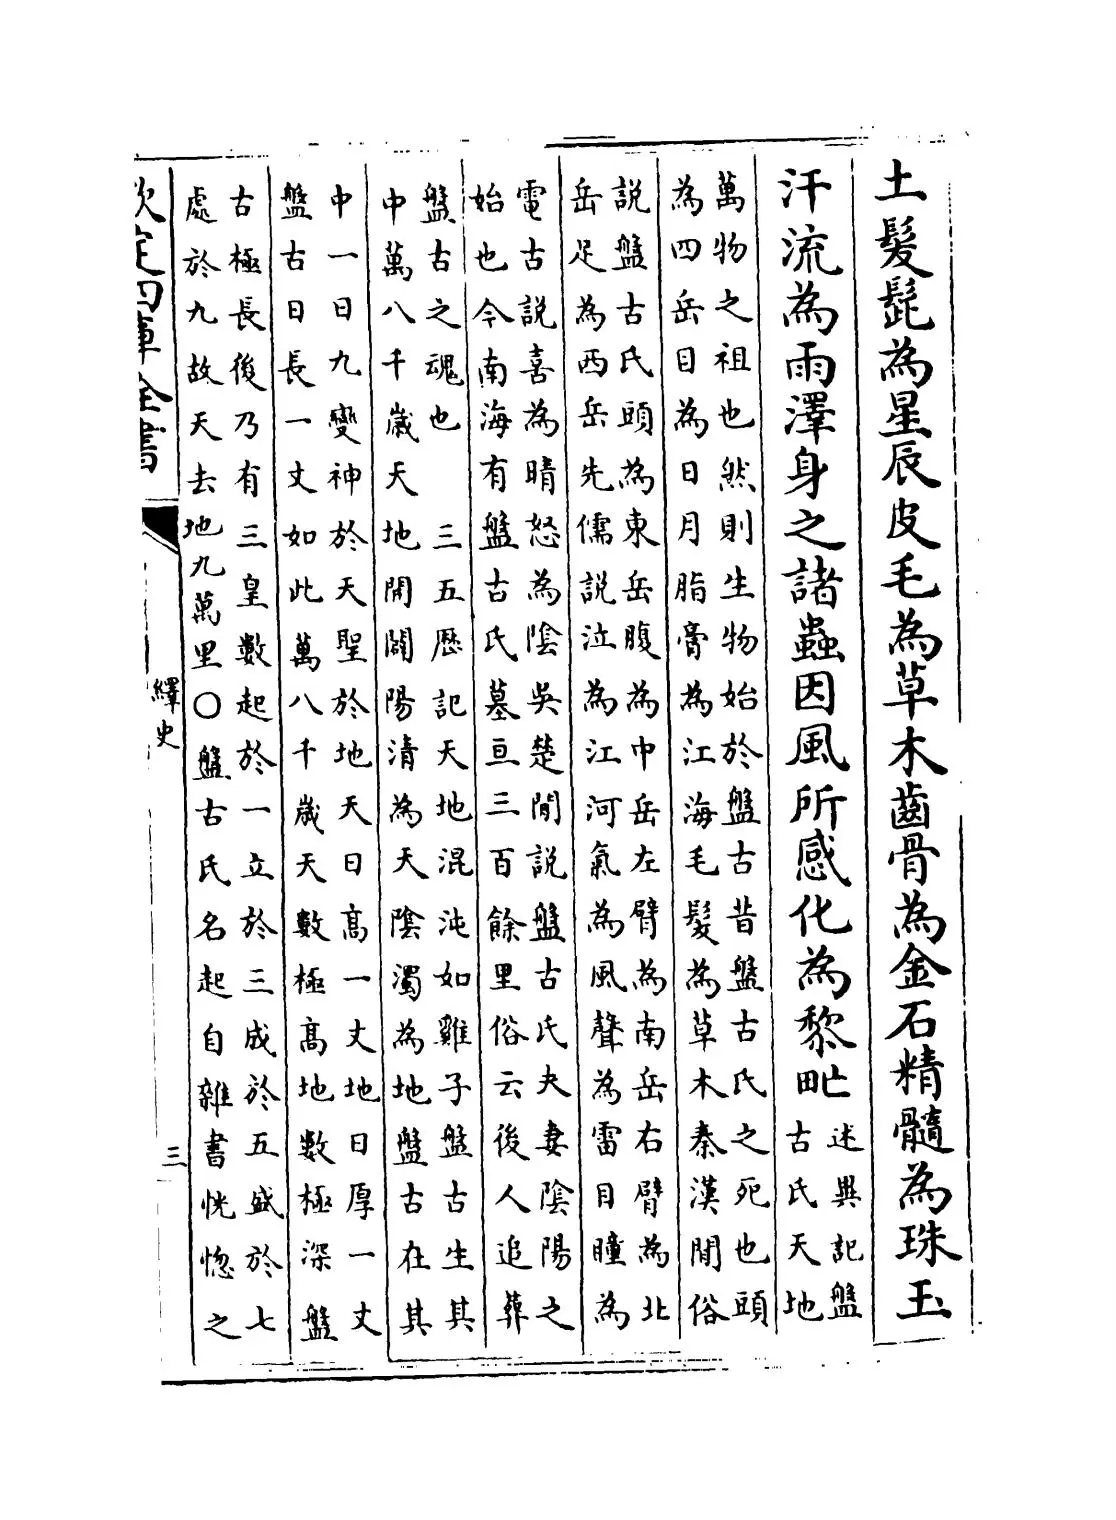 土髮髭為星辰皮毛為草木齒骨為金石精髓為珠玉
汗流為雨澤身之諸蟲因風所感化為黎甿
述異記盤
古氏天地
萬物之祖也然則生物始於盤古昔盤古氏之死也頭
為四岳目為日月脂膏為江海毛髮為草木秦漢閒俗
説盤古氏頭為東岳腹為中岳左臂為南岳右臂為北
岳足為西岳先儒説泣為江河氣為風聲為雷目瞳為
電古説喜為晴怒為陰吳楚閒説盤古氏夫妻陰陽之
始也今南海有盤古氏墓亘三百餘里俗云後人追葬
盤古之魂也　三五歴記天地混沌如雞子盤古生其
中萬八千歲天地開闢陽清為天陰濁為地盤古在其
中一日九變神於天聖於地天日高一丈地日厚一丈
盤古日長一丈如此萬八千歲天數極高地數極深盤
古極長後乃有三皇數起於一立於三成於五盛於七
處於九故天去地九萬里○盤古氏名起自雜書恍惚之
欽定四庫全書
繹史
三